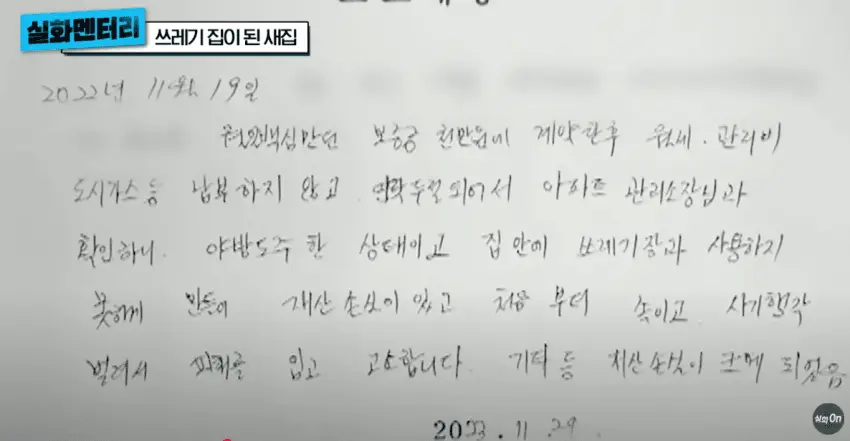 실화멘터리
쓰레기 집이 된 새집
2022년 11월 19일
보증금 천만원에 계약한후 월세. 관리비
도시가스 등 납부하지 않고 연락두절되어서 아파트 관리소장님과
확인하니. 야밤도주 한 상태이고 집안에 쓰레기장과 사용하지
못하게 만들어 재산 손실이 있고 처음부터 속이고 사기행각
벌려서 피해를 입고 고소합니다. 기타 등 재산손실이 크게 되었음
2023. 11. 29.
실화On